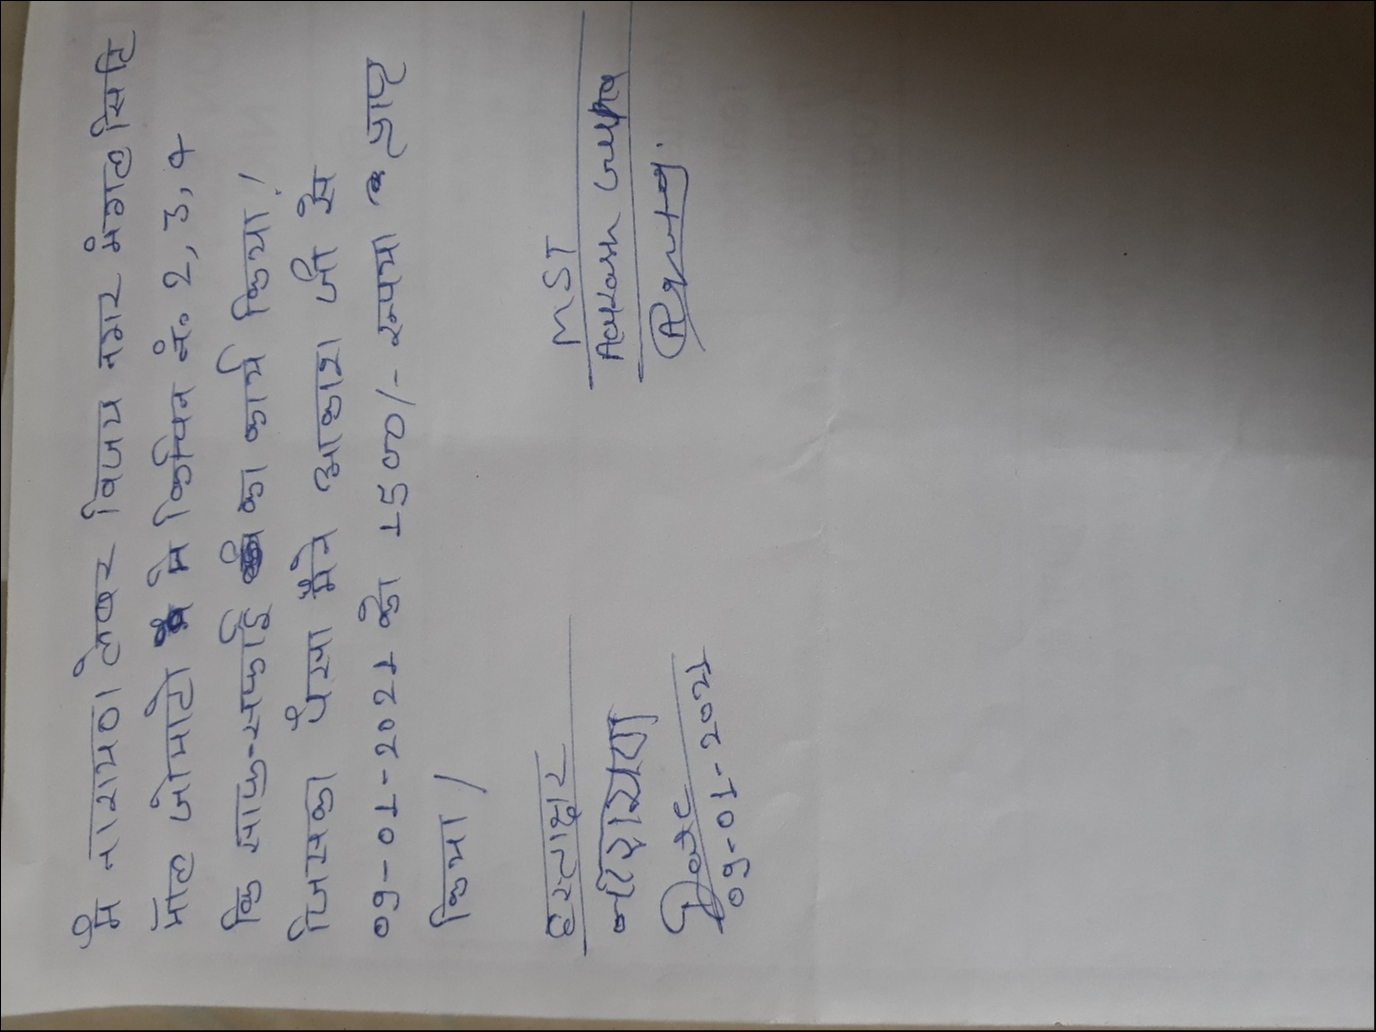 मै नारायण लेबर विजय नगर मंगल सिटि
मॉल जोमेटो मे किचिन नं. 2, 3, 4
कि साफ-सफाई का कार्य किया।
जिसका पैसा मैने आकाश जी से
09-01-2021 को 1500/- रूपया प्राप्त
किया।
हस्ताक्षर
नारायण
Date
09-01-2021
MST
Aakash Gupta